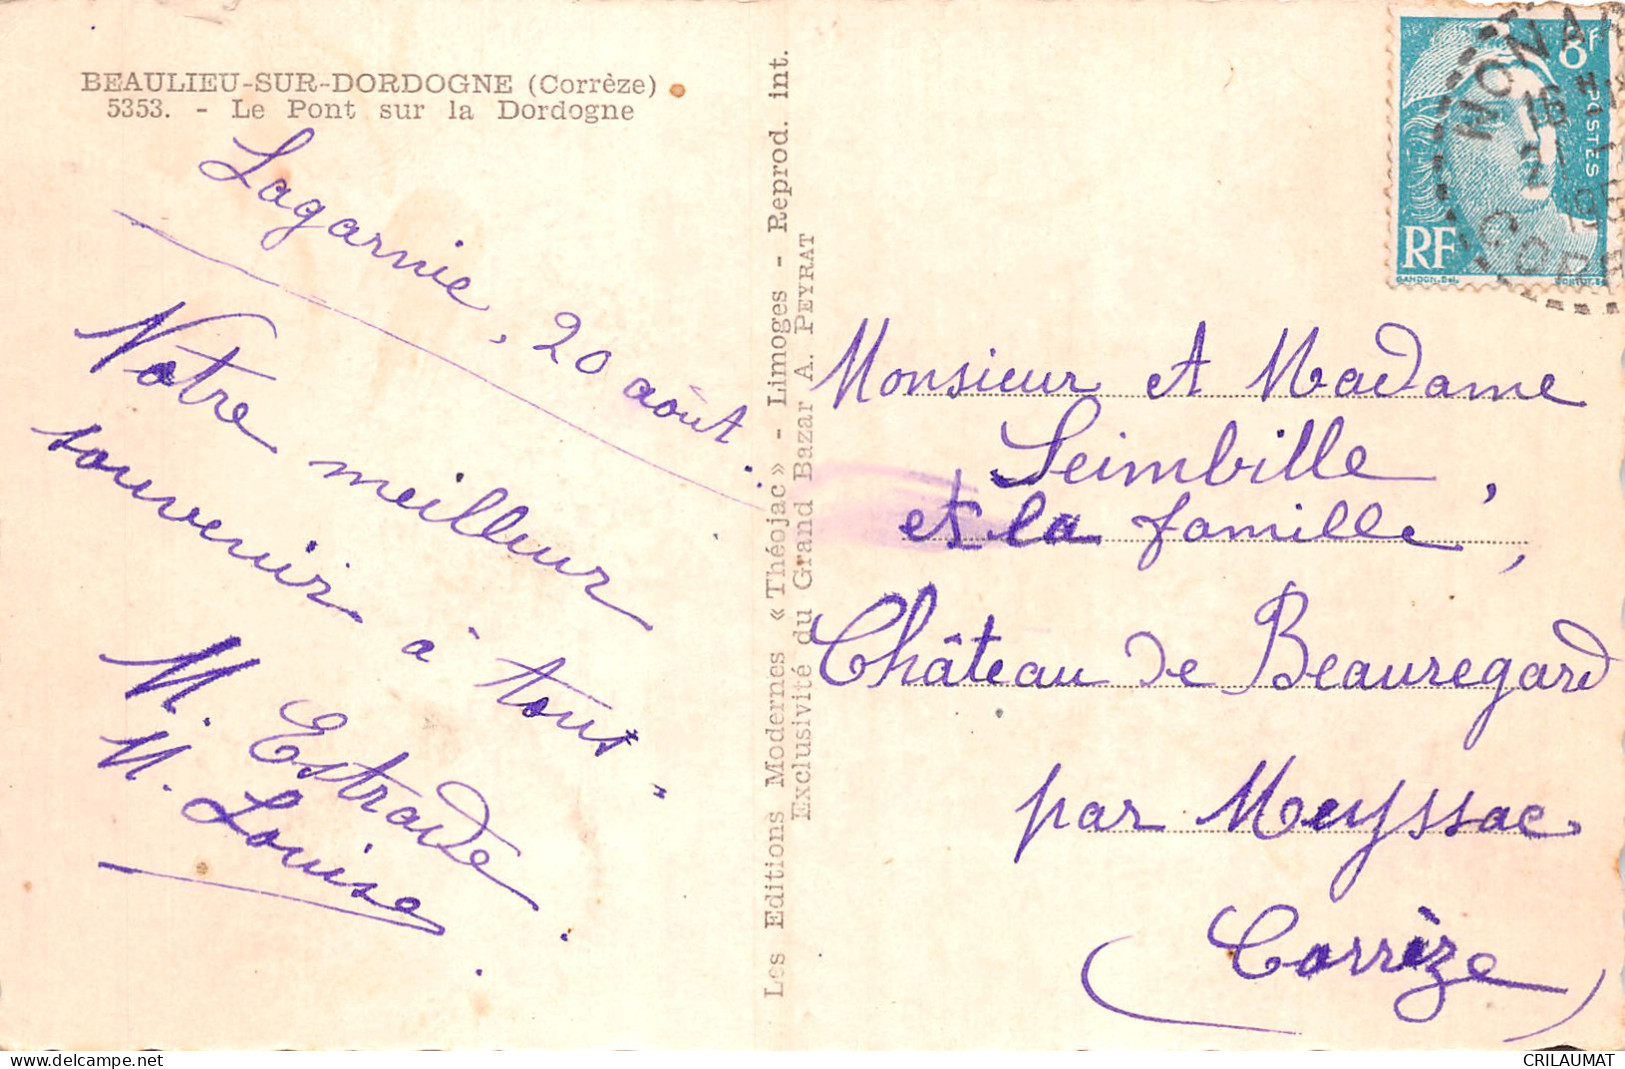 BEAULIEU-SUR-DORDOGNE (Corrèze)
5353. - Le Pont sur la Dordogne
Lagarnie, 20 août.
Notre meilleur
souvenir à tous.
M. Estrade.
M. Louise.
Les Editions Modernes « Théojac » - Limoges - Reprod. int.
Exclusivité du Grand Bazar A. PEYRAT
8F
POSTES
RF
GANDON
Monsieur et Madame
Seimbille,
et la famille,
Château de Beauregard
par Meyssac
(Corrèze)
CRILAUMAT